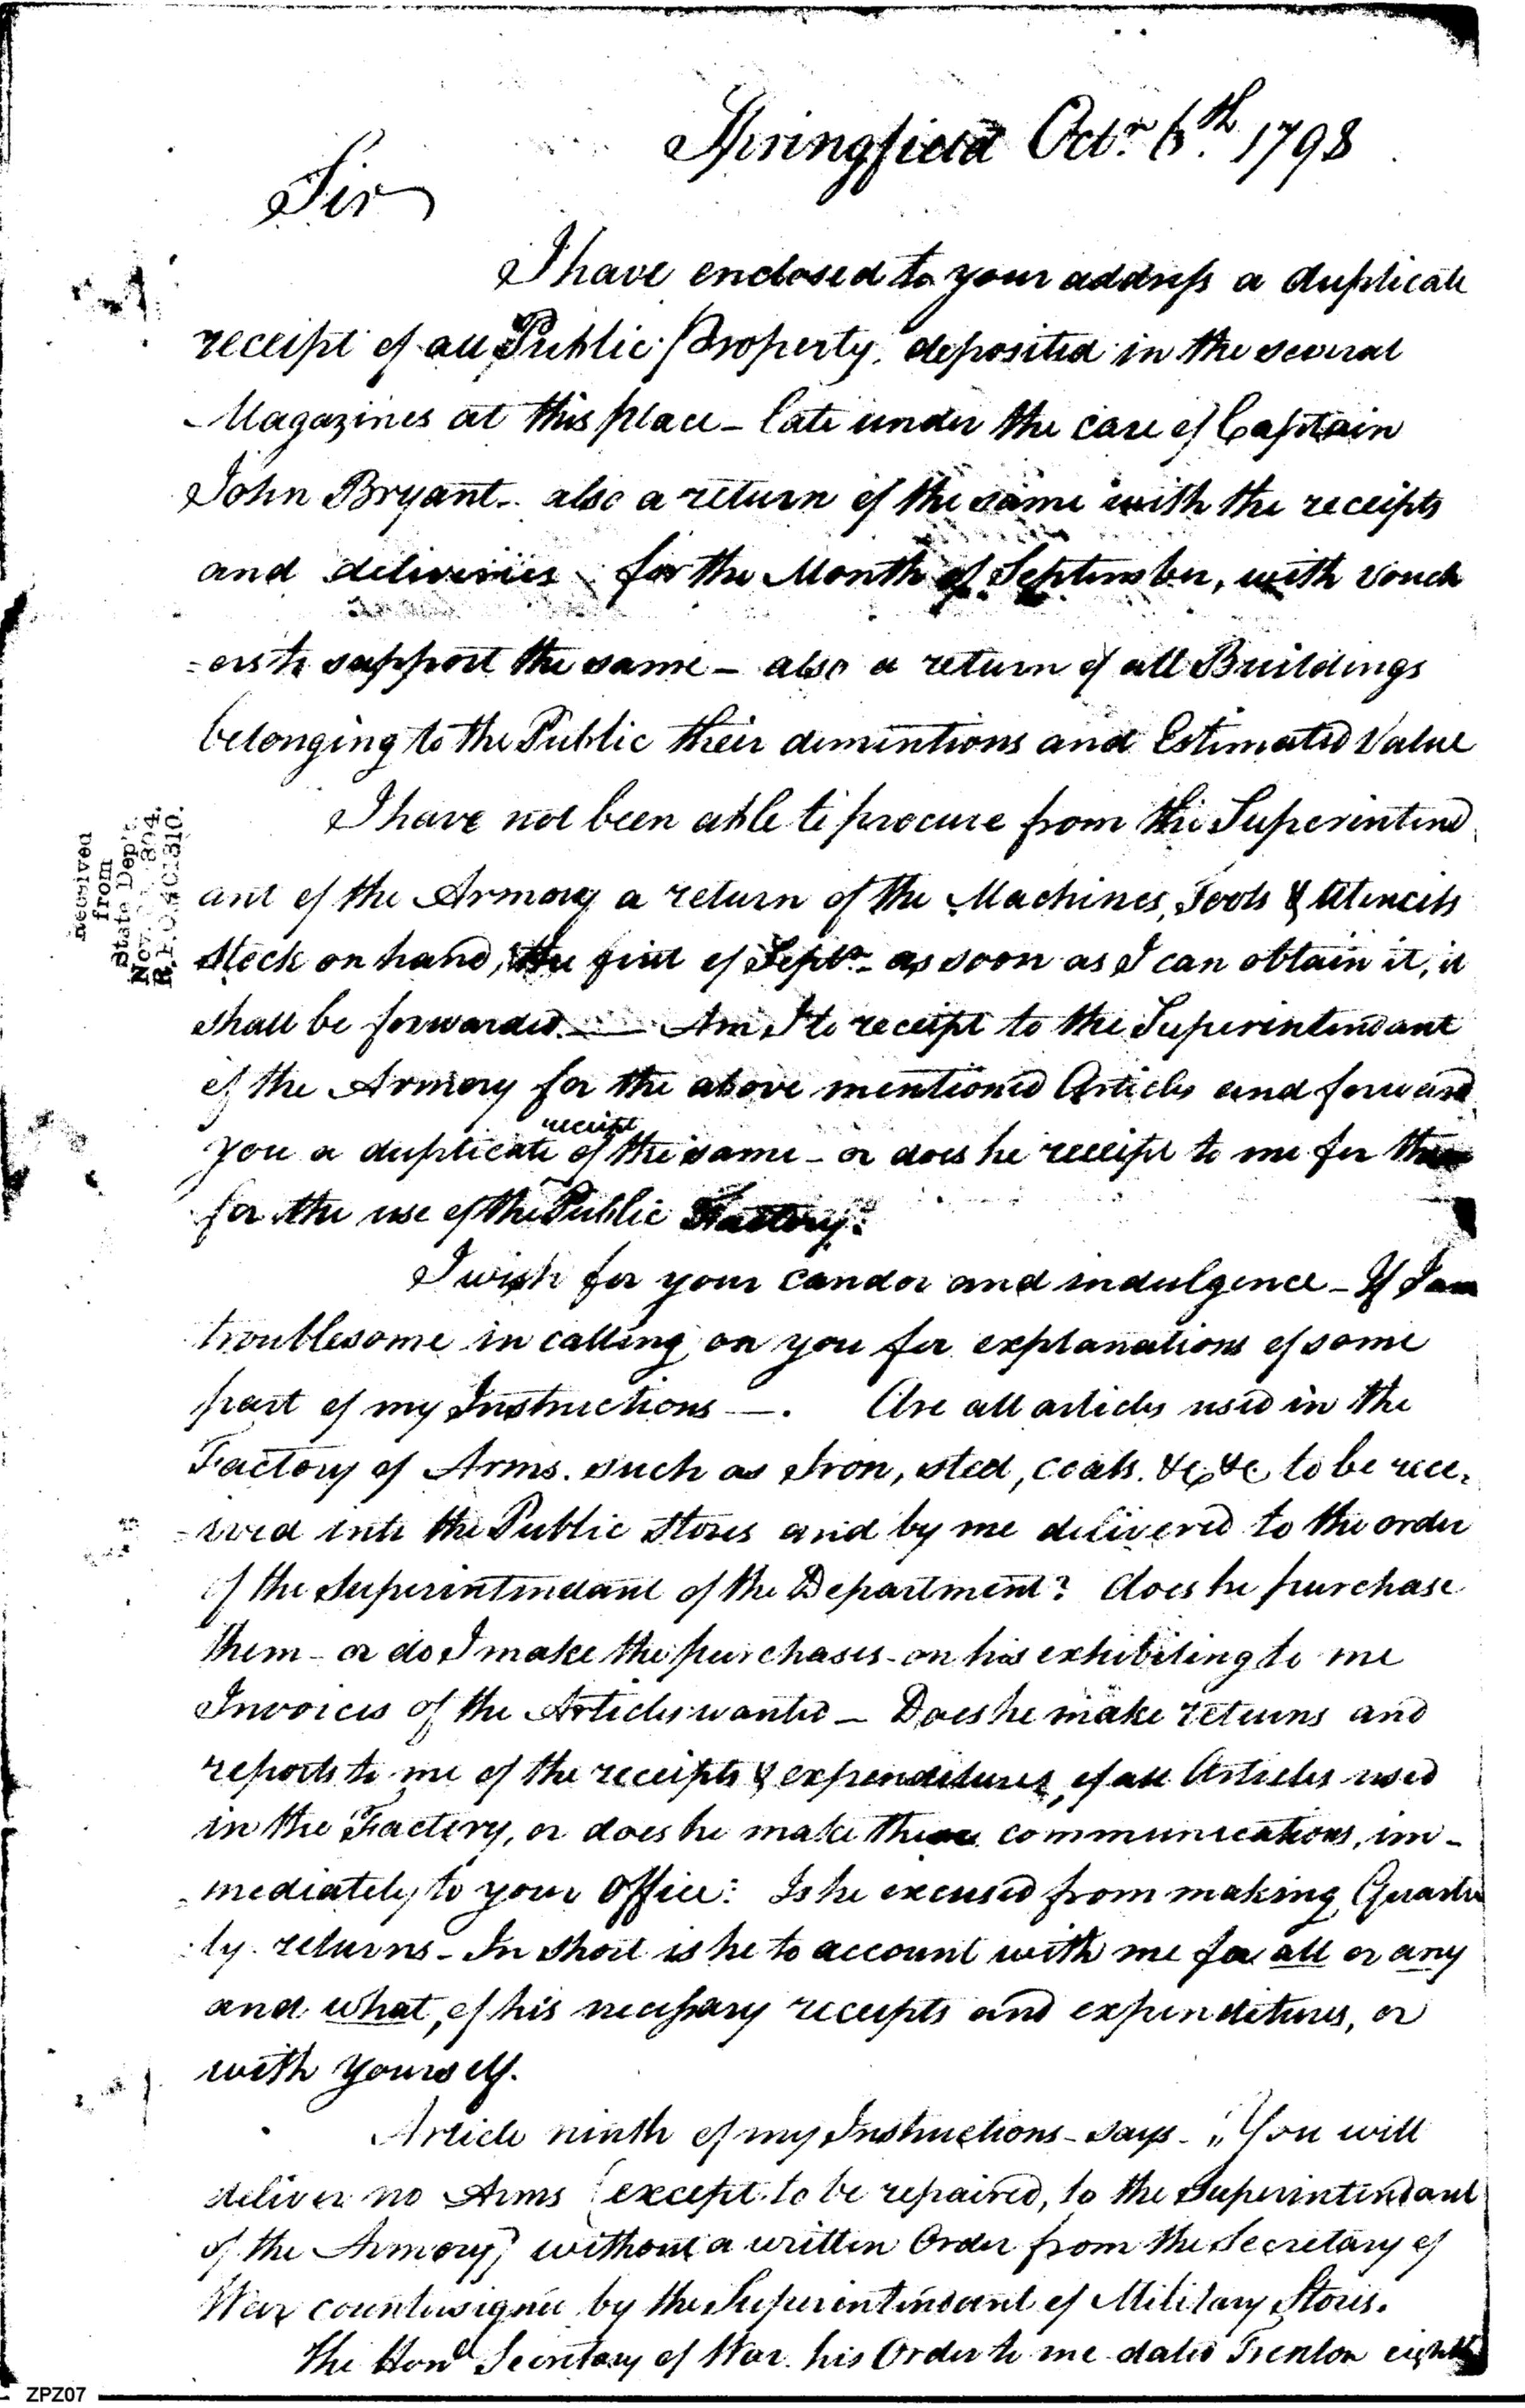 Springfield Octr. 6th. 1798
Sir
I have enclosed to your address a duplicate
receipt of all Public Property, deposited in the several
Magazines at this place - late under the care of Captain
John Bryant - also a return of the same with the receipts
and deliveries for the Month of September, with vouch
=ers to support the same - also a return of all Buildings
belonging to the Public their dimentions and Estimated Value
I have not been able to procure from the Superintend
ant of the Armory a return of the Machines, Tools & Utencils
Stock on hand, the first of Septr. as soon as I can obtain it, it
shall be forwarded. — Am I to receipt to the Superintendant
of the Armory for the above mentioned Articles and forward
you a duplicate receipt of the same - or does he receipt to me for them
for the use of the Public Factory.
I wish for your candor and indulgence - If I am
troublesome in calling on you for explanations of some
part of my Instructions —. Are all articles used in the
Factory of Arms. such as Iron, steel, coals. &c &c to be rece-
=ived into the Public Stores and by me delivered to the order
of the Superintendant of the Department? does he purchase
them - or do I make the purchases - on his exhibiting to me
Invoices of the Articles wanted - Does he make returns and
reports to me of the receipts & expenditures, of all Articles used
in the Factory, or does he make these communications, im-
=mediately to your Office: Is he excused from making Quarter
ly returns - In short is he to account with me for all or any
and what, of his necessary receipts and expenditures, or
with yourself.
Article ninth of my Instructions - says - "You will
deliver no Arms (except to be repaired, to the Superintendant
of the Armory) without a written Order from the Secretary of
War countersigned by the Superintendant of Military Stores.
The Hond Secretary of War his Order to me dated Trenton eighth
received
from
State Dept.
Nov. 1894.
ZPZ07